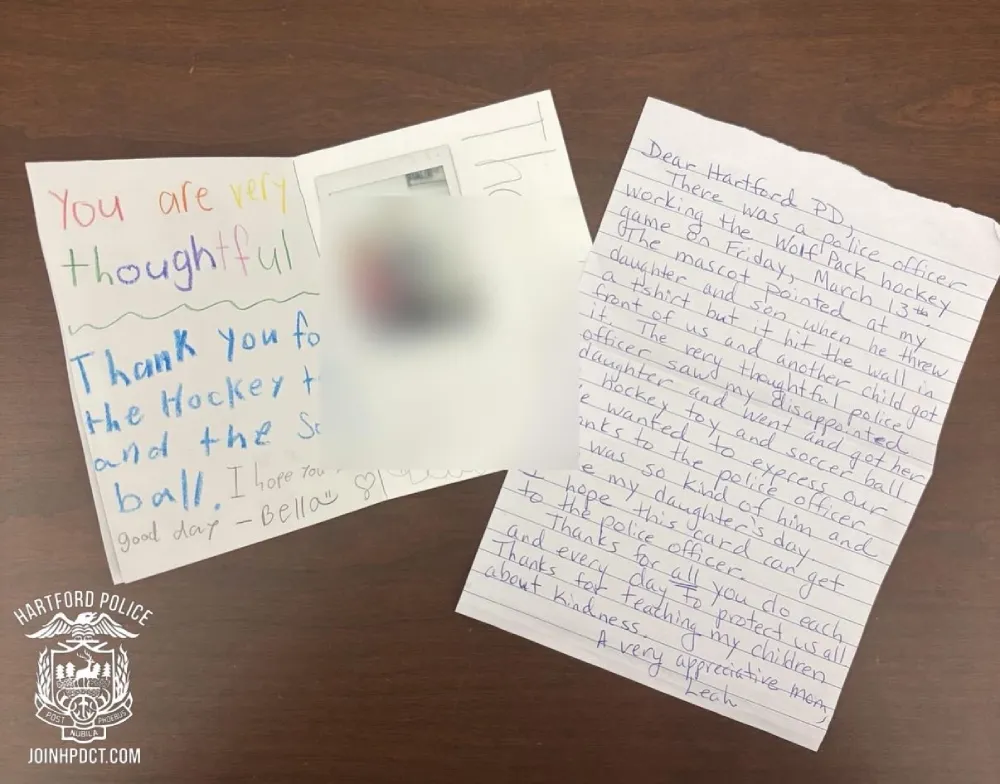 You are very
thoughtful
Thank you fo
the Hockey t
and the So
ball. I hope you
good day - Bella
Dear Hartford PD,
There was a police officer
working the Wolf Pack hockey
game on Friday, March 13th.
The mascot pointed at my
daughter and son when he threw
a tshirt but it hit the wall in
front of us and another child got
it. The very thoughtful police
officer saw my disappointed
daughter and went and got her
Hockey toy and soccer ball
e wanted to express our
anks to the police officer
was so kind of him and
e my daughter's day
I hope this card can get
to the police officer.
Thanks for all you do each
and every day to protect us all
Thanks for teaching my children
about kindness.
A very appreciative mom,
Leah
HARTFORD POLICE
POST NUBILA PHOEBUS
JOINHPDCT.COM